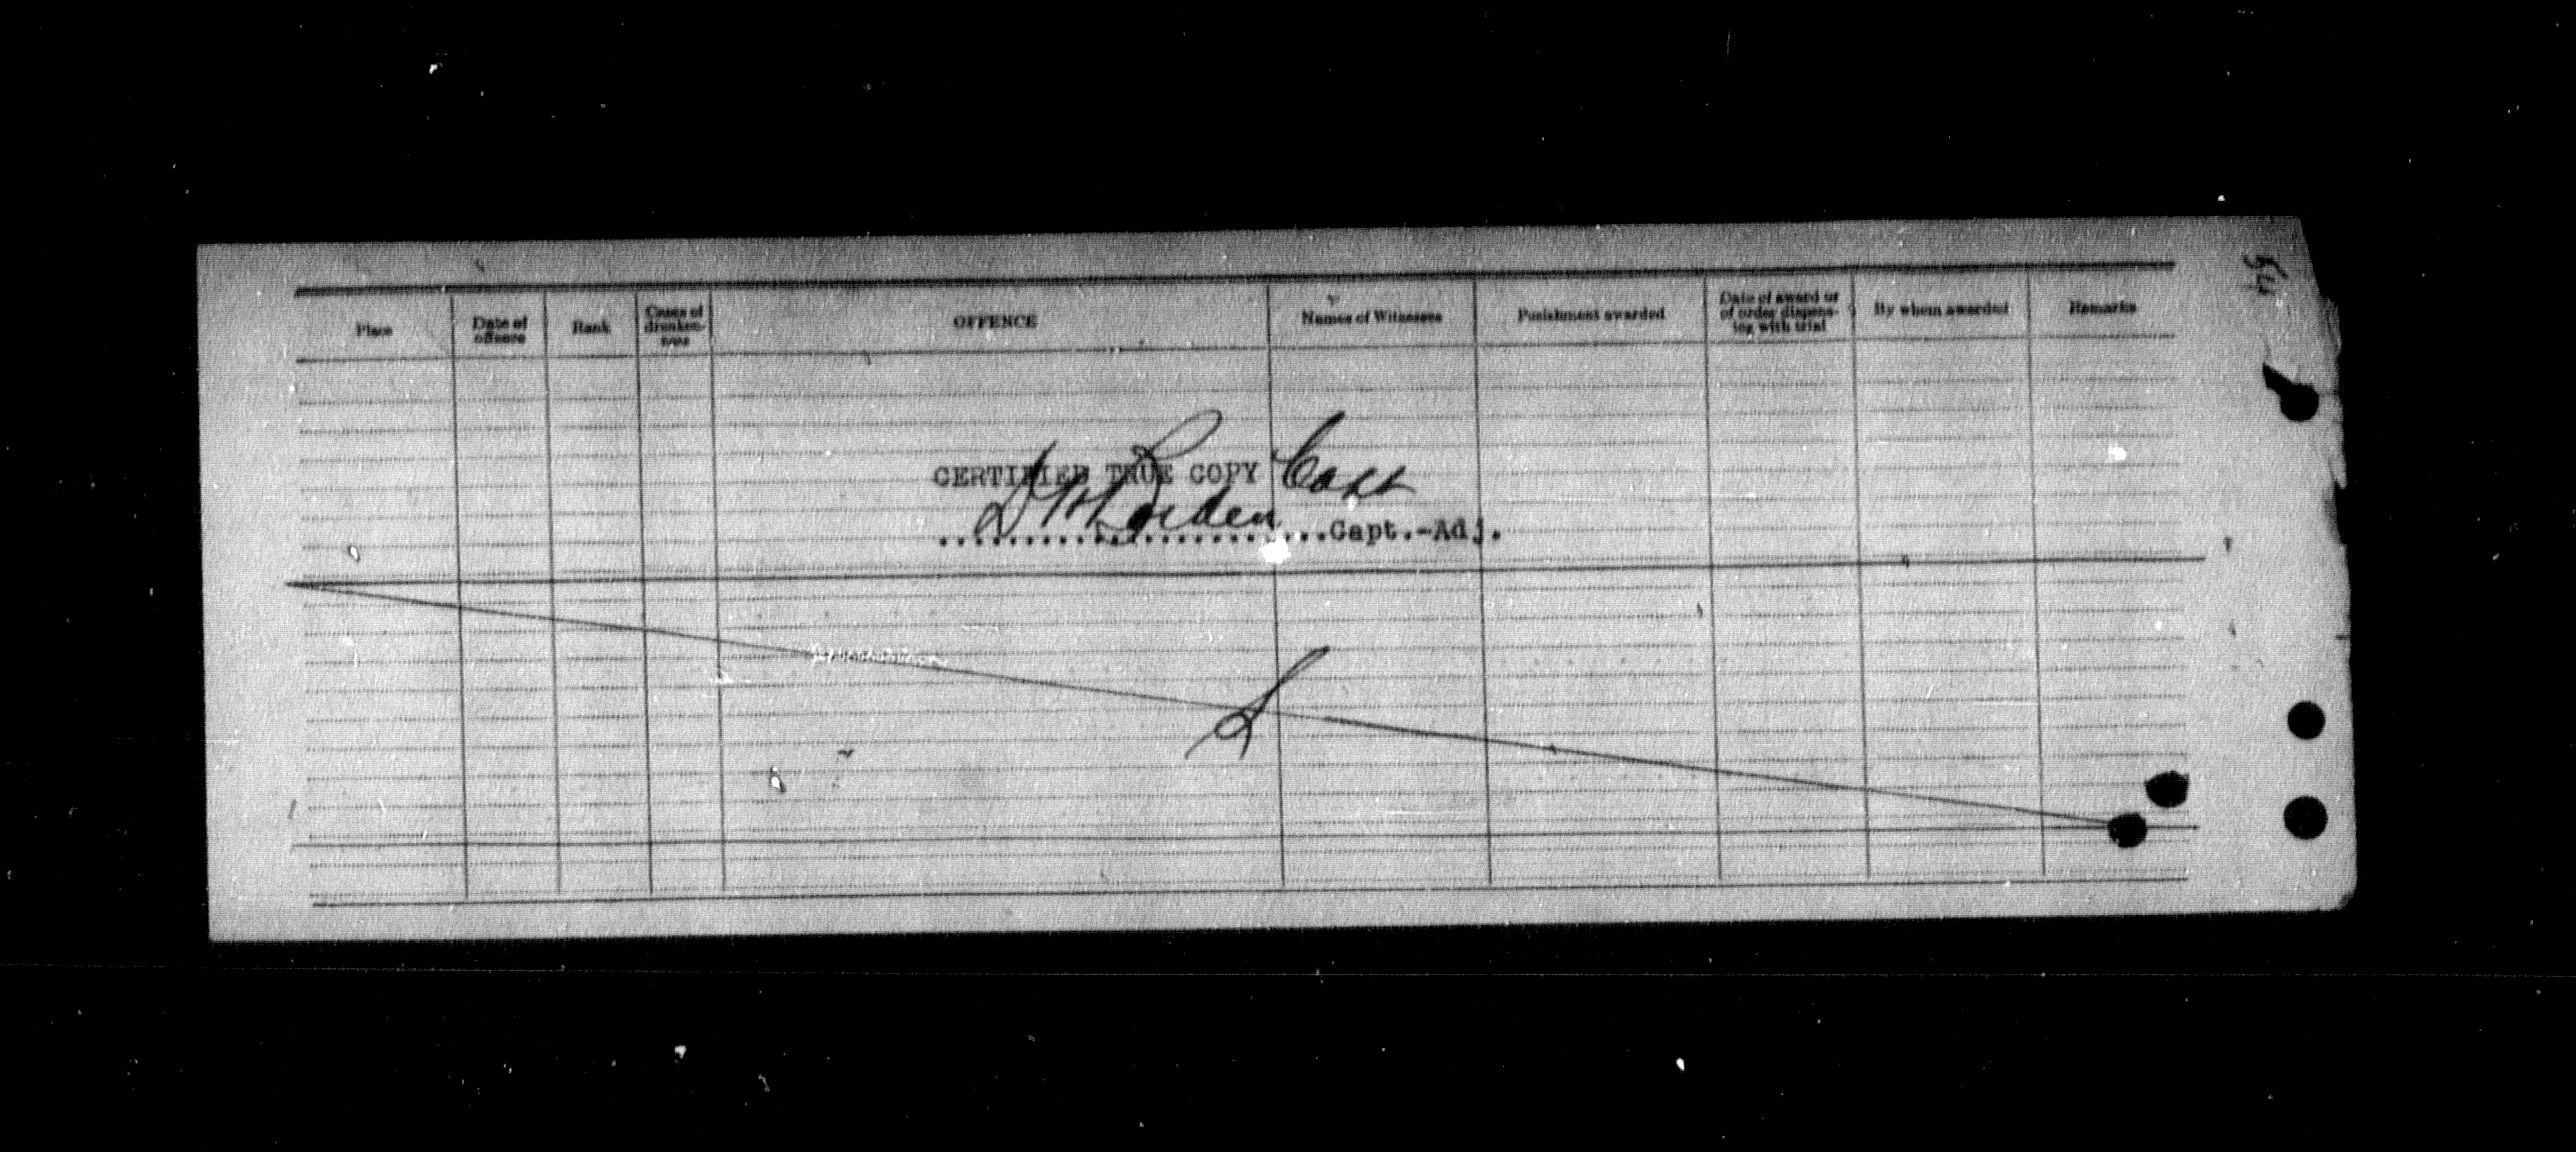 Place
Date of offence
Rank
Cases of drunken-ness
OFFENCE
Names of Witnesses
Punishment awarded
Date of award or of order dispens-ing with trial
By whom awarded
Remarks
CERTIFIED TRUE COPY Capt
.......................Capt.-Adj.